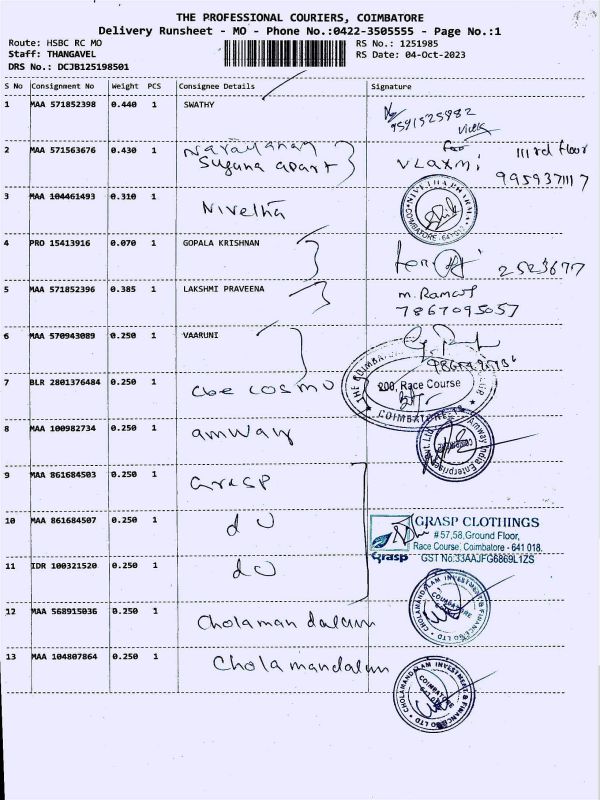 THE PROFESSIONAL COURIERS, COIMBATORE
Delivery Runsheet - MO - Phone No.:0422-3505555 - Page No.:1
Route: HSBC RC MO
RS No.: 1251985
Staff: THANGAVEL
RS Date: 04-Oct-2023
DRS No.: DCJB125198501
S No Consignment No Weight PCS Consignee Details Signature
1 MAA 571852398 0.440 1 SWATHY
9591525982
2 MAA 571563676 0.430 1 Narayanan
Suguna apart
VLaxmi
IIIrd floor
9959371117
3 MAA 104461493 0.310 1 Nivetha
NIVETHA PHARMA
COIMBATORE - 641 012
4 PRO 15413916 0.070 1 GOPALA KRISHNAN
2523677
5 MAA 571852396 0.385 1 LAKSHMI PRAVEENA
7867095057
6 MAA 570943089 0.250 1 VAARUNI
7 BLR 2801376484 0.250 1 cbe cosmo
200, Race Course
COIMBATORE-18
8 MAA 100982734 0.250 1 amway
Amway India Enterprises Pvt. Ltd.
9 MAA 861684503 0.250 1 Grasp
10 MAA 861684507 0.250 1 do
GRASP CLOTHINGS
#57,58,Ground Floor,
Race Course, Coimbatore - 641 018.
Grasp GST No:33AAJFG6869L1ZS
11 IDR 100321520 0.250 1 do
12 MAA 568915036 0.250 1 Cholamandalam
CHOLAMANDALAM INVESTMENT & FINANCE CO LTD
COIMBATORE
13 MAA 104807864 0.250 1 Cholamandalam
CHOLAMANDALAM INVESTMENT & FINANCE CO LTD
COIMBATORE